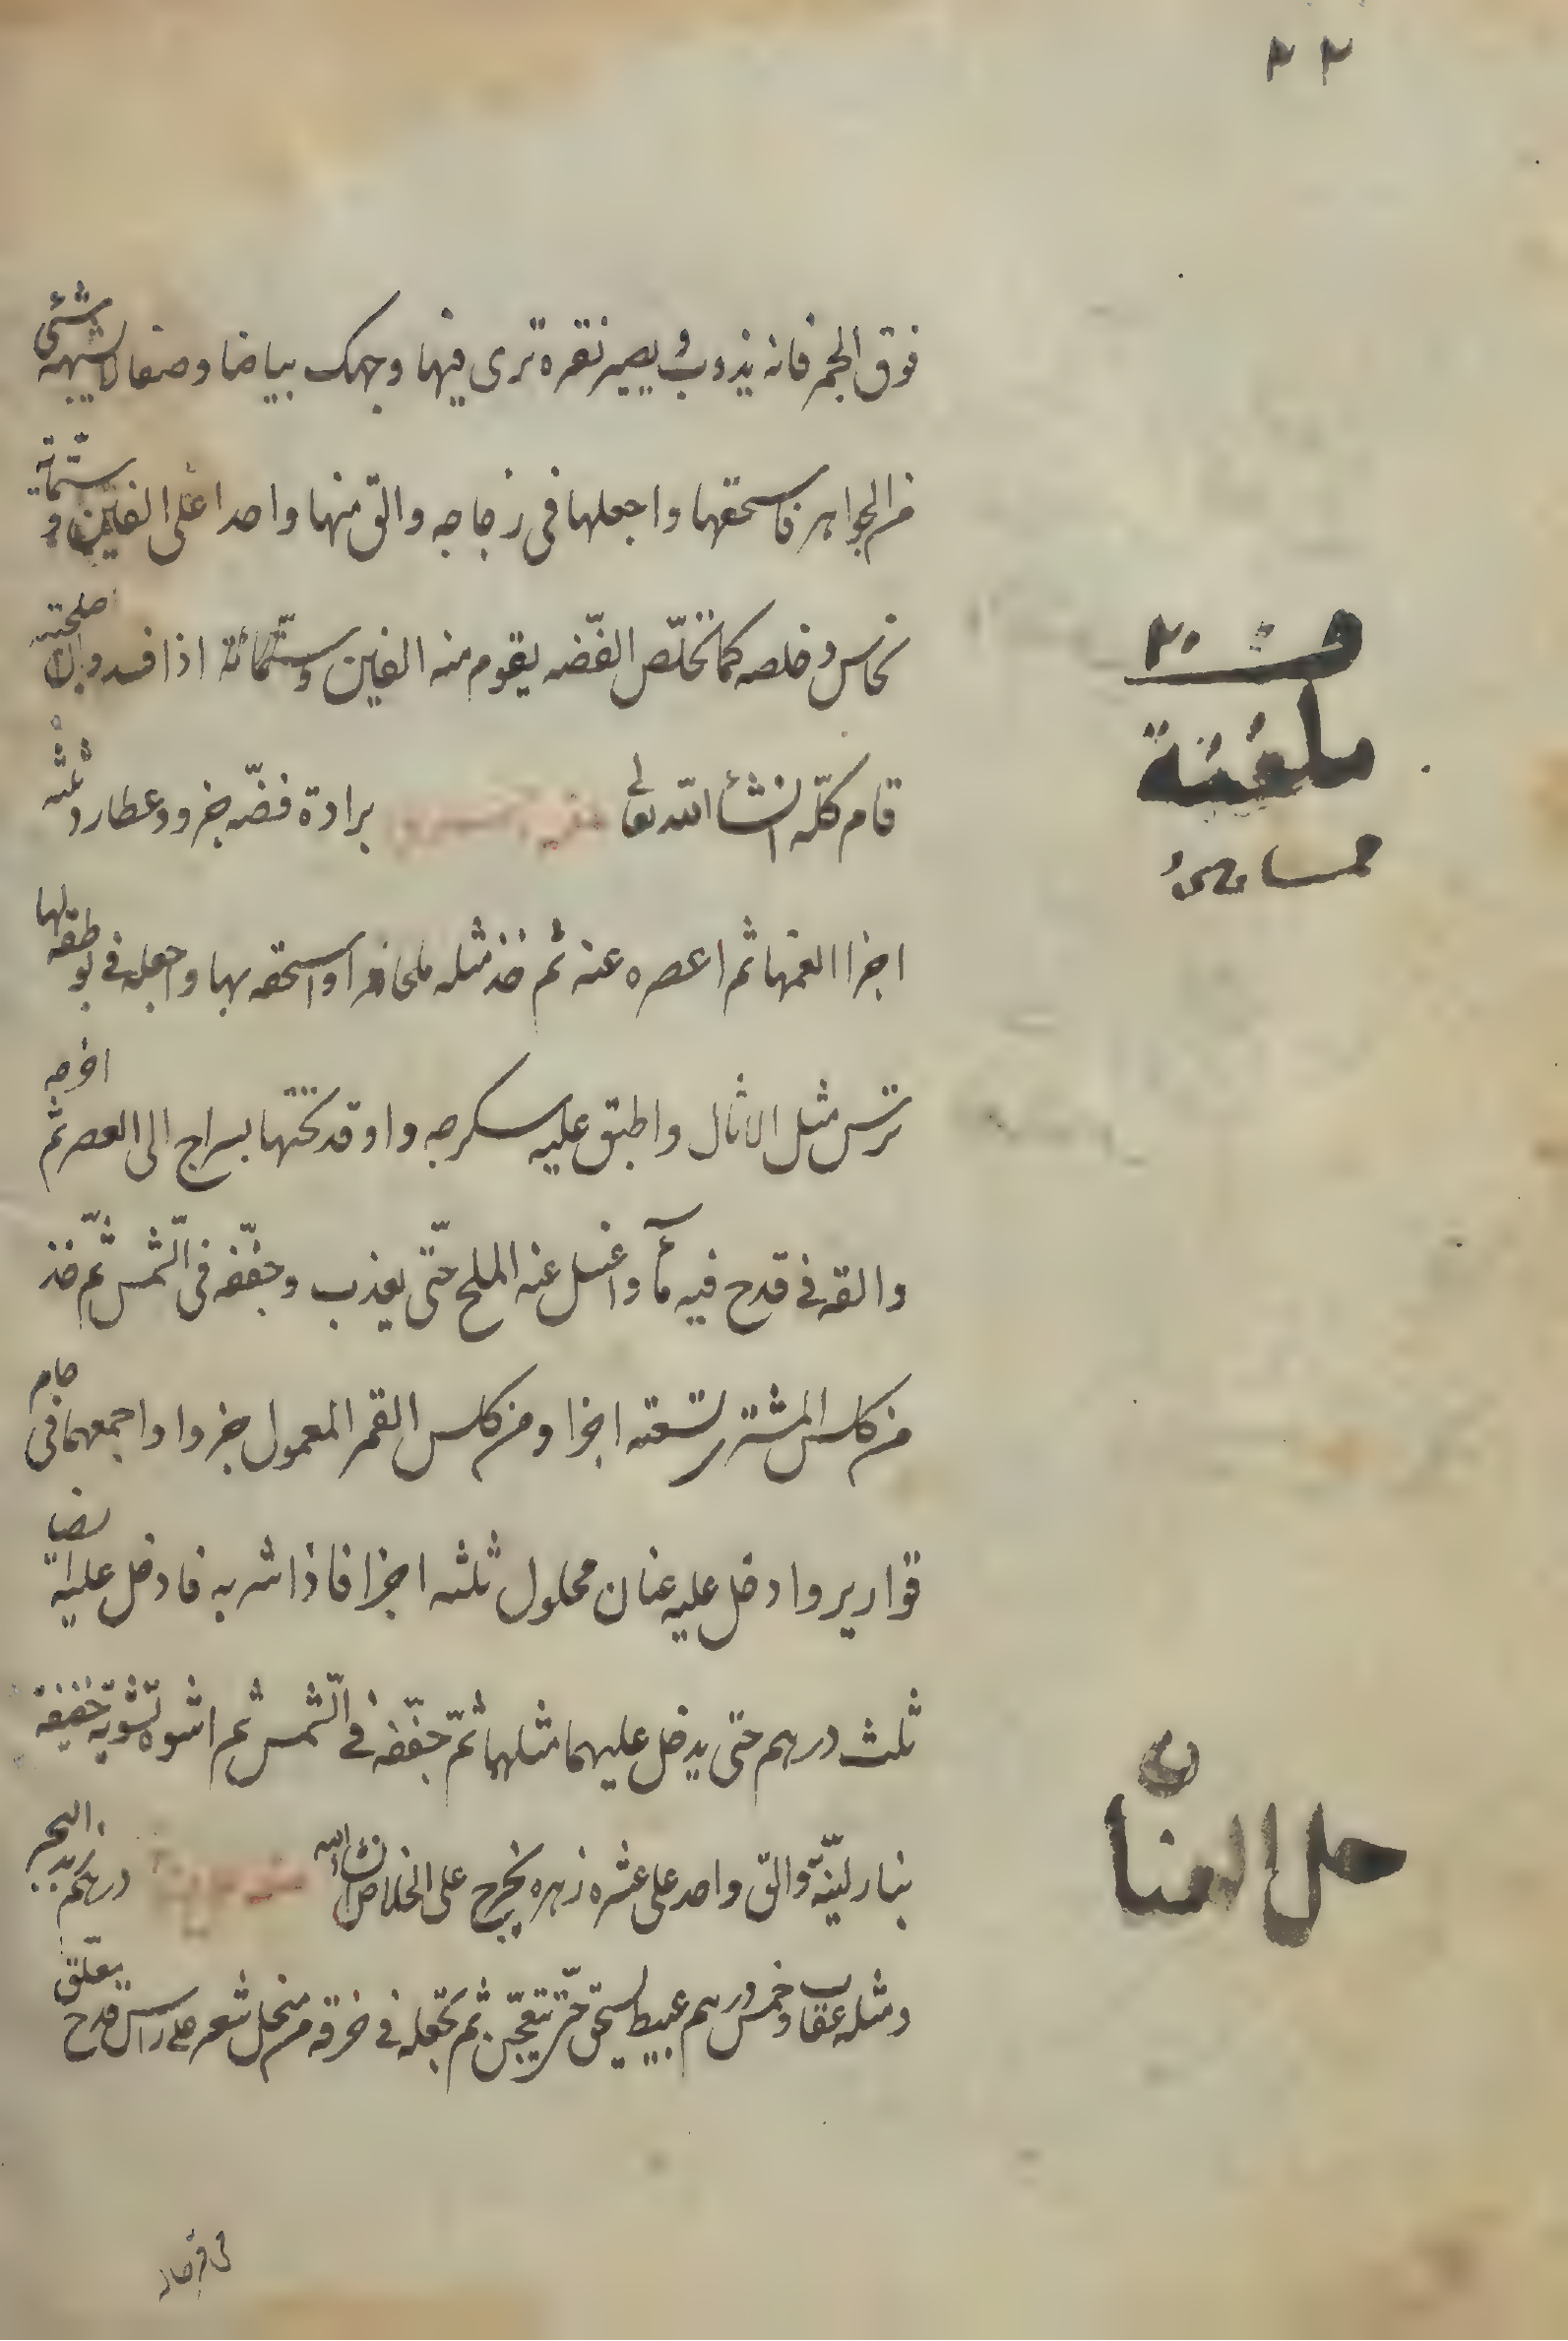 ٢٢
فوق الجمر فانه يذوب و يصير نقره ترى فيها وجهك بياضا وصفا لا يشبهه شئ
من الجواهر فاسحقها واجعلها فى زجاجه والق منها واحدا على الفين و ستمائة
نحاس وخلصه كما تخلّص الفضّه يقوم منه الفين وستّمائة اذا فسد وان اصلحته
قام كلّه انشأ الله تعالى برادة فضّه جزو وعطارد ثلثه
اجزا الغمها ثم اعصره عنه ثم خذ مثله ملحا واسحقه بها واجعله فى بوطقه لها
ترس مثل الاثال واطبق عليه سكرجه واوقد تحتها بسراج الى العصر ثم اخرجه
والقه فى قدح فيه مآء واغسل عنه الملح حتّى يعذب وجفّفه فى الشّمس ثمّ خذ
من كلس المشترى تسعة اجزا ومن كلس القمر المعمول جزوا واجمعهما فى جام
قوارير وادخل عليه عنان محلول ثلثه اجزا فاذا شربه فادخل عليه ايضا
ثلث درهم حتى يدخل عليهما مثلهما ثمّ جفّفه فى الشّمس ثم اشوه تشوية خفيفة
بنار ليّنة والق واحد على عشره زهره يخرج على الخلاص انشا الله درهم زبد البحر
ومثله عقاب وخمس درهم عبيط يسحق حتى يتعجّن ثم تجعله فى خرقه من منخل شعر على راس قدح يعلّق
ملغمة
حل